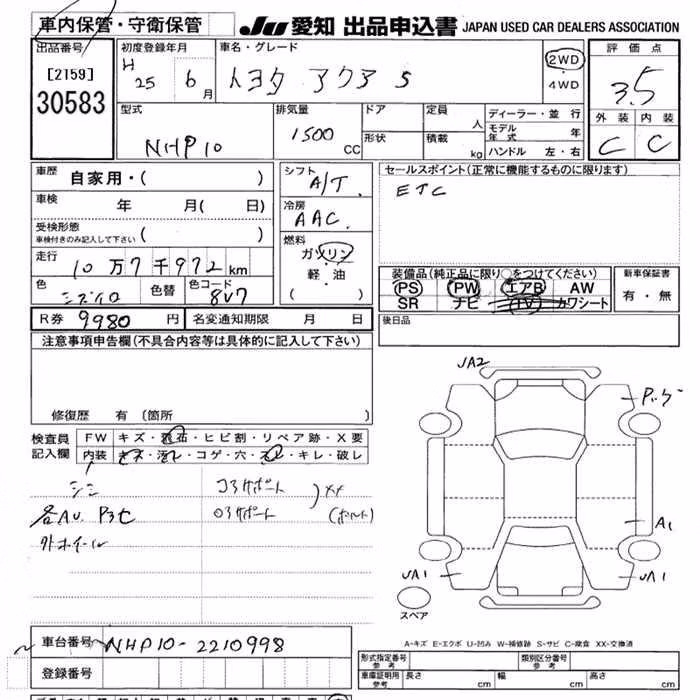 車内保管・守衛保管 JU 愛知 出品申込書 JAPAN USED CAR DEALERS ASSOCIATION
出品番号 初度登録年月 車名・グレード 評価点
[2159] H 25 6月 トヨタ アクア S 2WD ・ 4WD 3.5
30583
型式 排気量 ドア 定員 人 ディーラー・並行 外装 内装
NHP10 1500 CC 形状 積載 kg モデル年式 年 C C
ハンドル 左・右
車歴 自家用・( ) シフト A/T. セールスポイント(正常に機能するものに限ります)
車検 年 月( 日) 冷房 AAC. ETC
受検形態 ( )
車検付きのみ記入して下さい
燃料 ガソリン
走行 10万7千972km 軽・油
( )
装備品(純正品に限り○をつけてください) 新車保証書
色 色替 色コード 8V7 PS PW エアB AW 有・無
SR ナビ TV カワシート
R券 9980 円 名変通知期限 月 日 後日品
注意事項申告欄(不具合内容等は具体的に記入して下さい)
修復歴 有 (箇所 )
JA2
検査員 FW キズ・飛石・ヒビ割・リペア跡・X要
記入欄 内装 キズ・汚レ・コゲ・穴・スレ・キレ・破レ
シミ コアサポート XX
外ホイール
A1
UA1 UA1
スペア
A-キズ E-エクボ U-凹み W-補修跡 S-サビ C-腐食 XX-交換済
車台番号 NHP10-2210998
登録番号
形式指定番号 参考 類別区分番号 参考
車庫証明用 参考 長さ cm 幅 cm 高さ cm